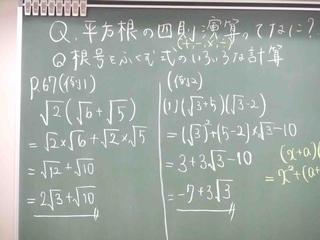 Q.平方根の四則演算ってなに?
(+,-,×,÷)
Q根号をふくむ式のいろいろな計算
P.67(例1)
√2(√6+√5)
=√2×√6+√2×√5
=√12+√10
=2√3+√10
(例2)
(1)(√3+5)(√3-2)
=(√3)²+(5-2)×√3-10
=3+3√3-10
=-7+3√3
(x+a)(
=x²+(a+